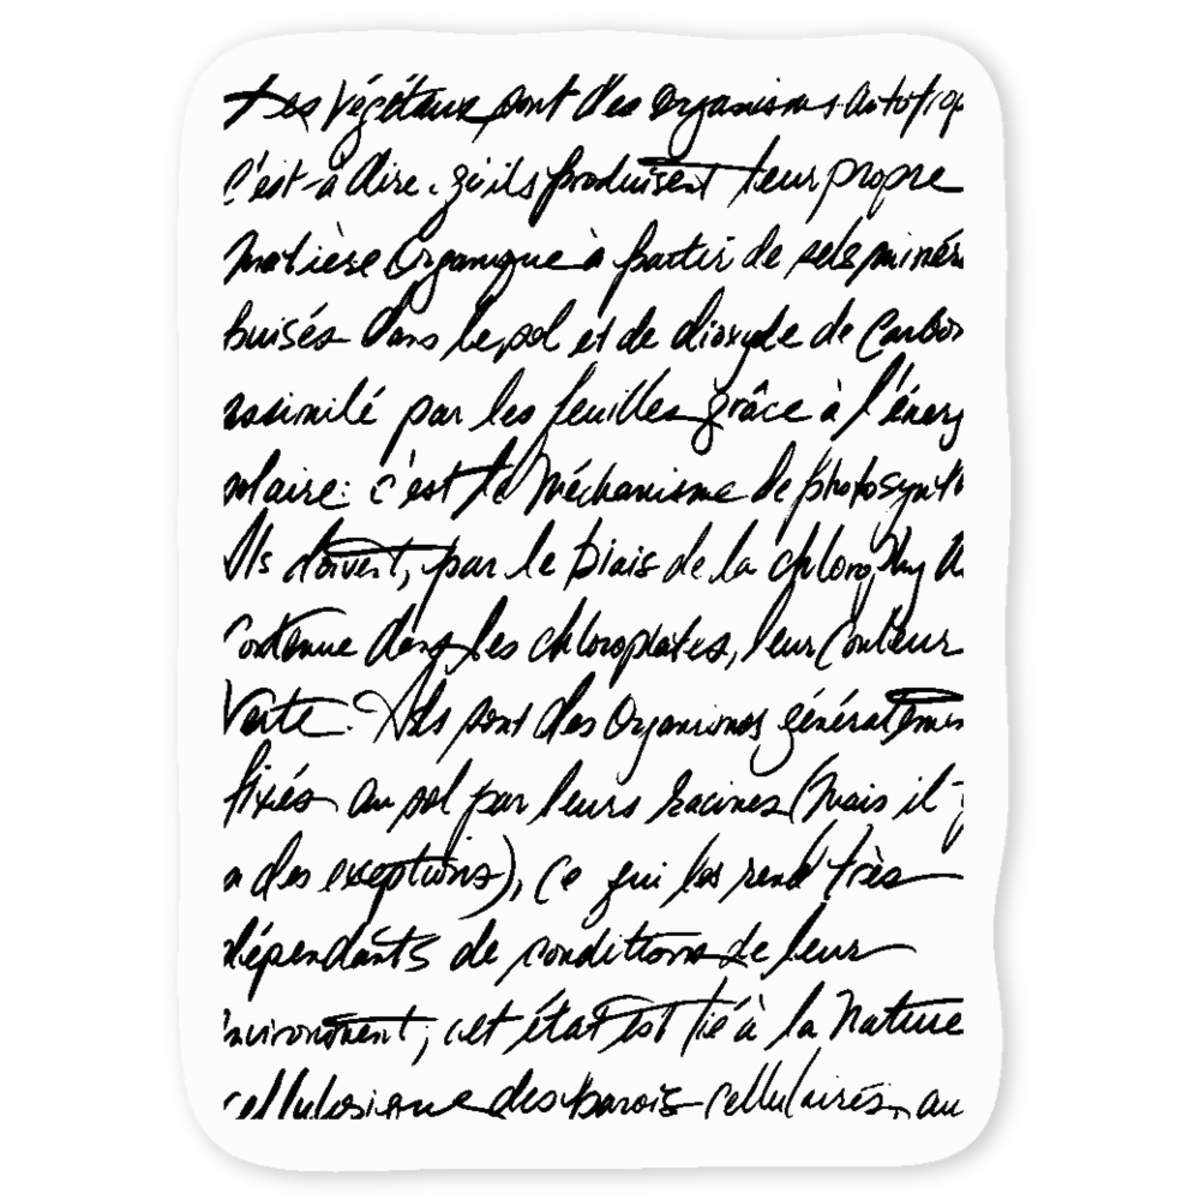 Les végétaux sont des organismes autotrop
c'est-à dire, qu'ils produisent leur propre
matière organique à partir de sels minér
puisés dans le sol et de dioxyde de Carbon
assimilé par les feuilles grâce à l'énerg
solaire: c'est le méchanisme de photosynth
Ils doivent, par le biais de la chlorophy
contenue dans les chloroplastes, leur couleur
Verte. Ils sont des organismes généralemen
fixés au sol par leurs racines (mais il y
a des exceptions), ce qui les rend très
dépendants de conditions de leur
nvironnement, cet état est lié à la Nature
cellulosique des parois cellulaires, au